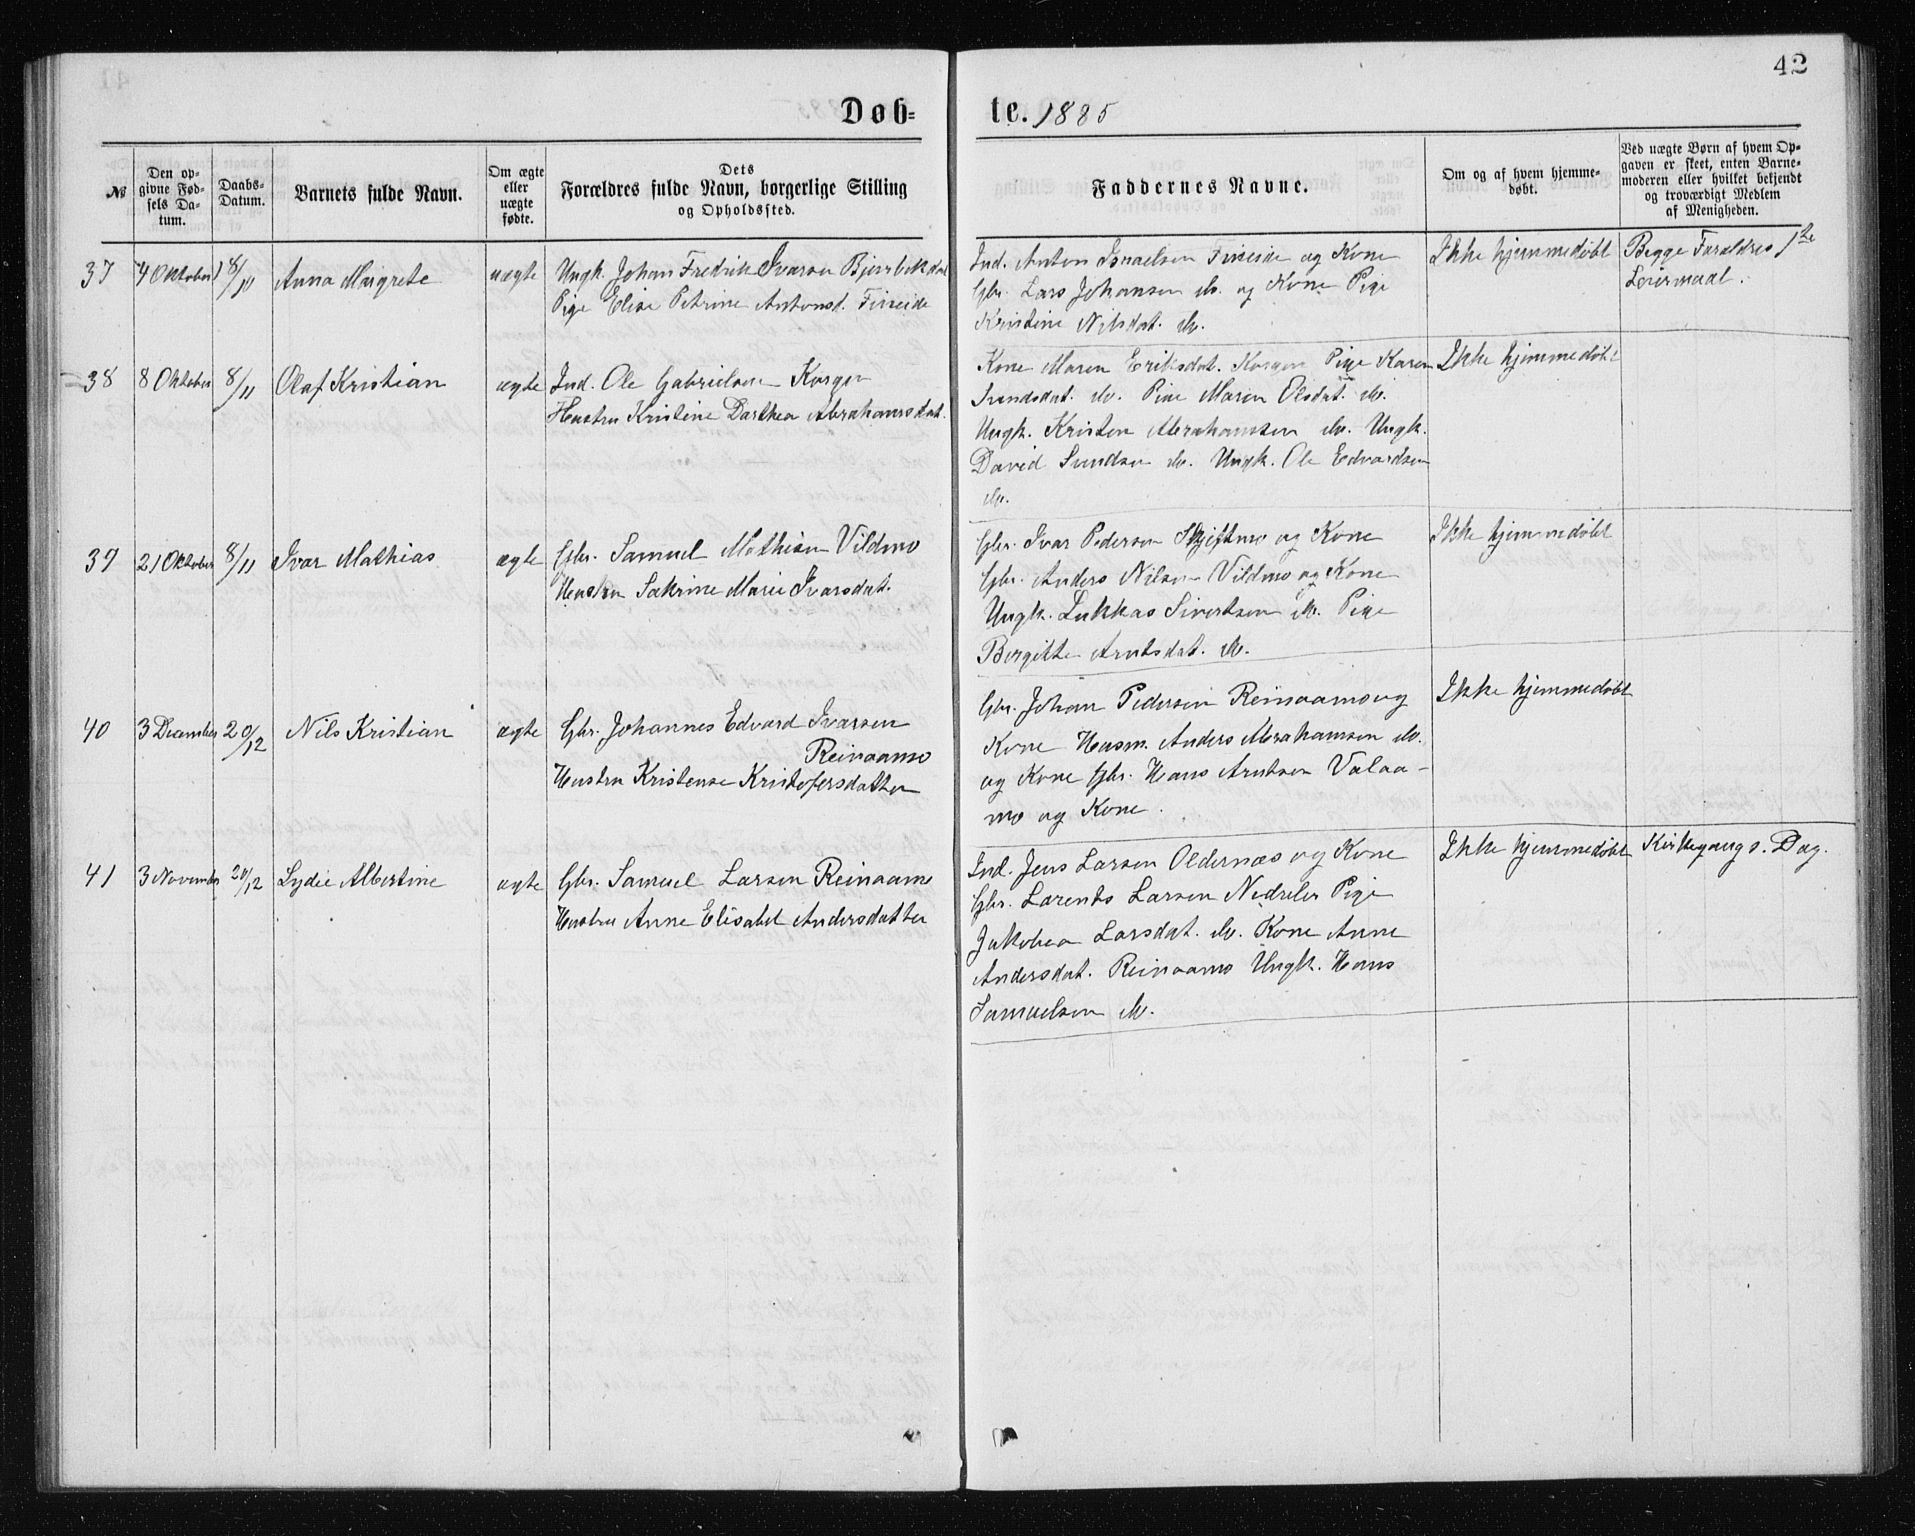 42
Døb=
te. 1885
№
Den op-
givne Fød-
sels Da-
tum.
Daabs-
Datum.
Barnets fulde Navn.
Om ægte
eller
uægte
fødte.
Dets
Forældres fulde Navn, borgerlige Stilling
og Opholdssted.
Faddernes Navne.
Om og af hvem hjemme-
døbt.
Ved uægte Børn af hvem Op-
gaven er skeet, enten Barne-
moderen eller hvilket bekjendt
og troværdigt Medlem
af Menigheden.
37 4 Oktober 18/10 Anna Margrete uægte Ungk. Johan Fredrik Ivarsen
Pige Elise Petrine Antonsd. Fineide
Ind. Anton Israelsen Fineide og Kone
Gbr. Lars Johansen do. og Kone Pige
Kristine Nilsdat. do.
Ikke hjemmedøbt
Begge Foraldres 1ste
Leiermaal.
38 8 Oktober 8/11 Olaf Kristian ægte Ind. Ole Gabrielsen Korgen
Hustru Kristine Darthea Abrahamsdat.
Kone Maren Eriksdat. Korgen Pige Karen
Svendsdat. do. Pige Maren Olsdat. do.
Ungk. Kristen Abrahamsen do. Ungk.
David Svendsen do. Ungk. Ole Edvardsen
do.
Ikke hjemmedøbt
39 21 Oktober 8/11 Ivar Mathias ægte Gbr. Samuel Mathisen Vildmo
Hustru Sakrine Marie Ivarsdat.
Gbr. Ivar Pedersen Skjeftmo og Kone
Gbr. Anders Nilsen Vildmo og Kone
Ungk. Lukkas Sivertsen do. Pige
Bergitte Arntsdat. do.
Ikke hjemmedøbt
40 3 December 20/12 Nils Kristian ægte Gbr. Johannes Edvard Ivarsen
Reinaamo
Hustru Kristense Kristofersdatter
Gbr. Johan Pedersen Reinaamo og
Kone Husm. Anders Abrahamsen do.
og Kone Gbr. Hans Arntsen Valaa-
mo og Kone.
Ikke hjemmedøbt
41 3 November 20/12 Lydie Albertine ægte Gbr. Samuel Larsen Reinaamo
Hustru Anne Elisabet Andersdatter
Ind. Jens Larsen Oldernæs og Kone
Gbr. Larents Larsen Nedreler Pige
Jakobea Larsdat. do. Kone Anne
Andersdat. Reinaamo Ungk. Hans
Samuelsen do.
Ikke hjemmedøbt
Kirkegangs. Dag.